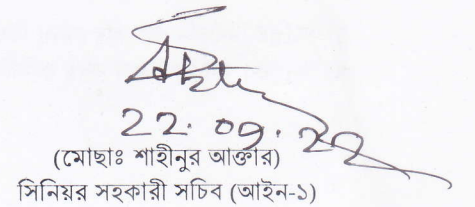 22.09.22
(মোছাঃ শাহীনুর আক্তার)
সিনিয়র সহকারী সচিব (আইন-১)